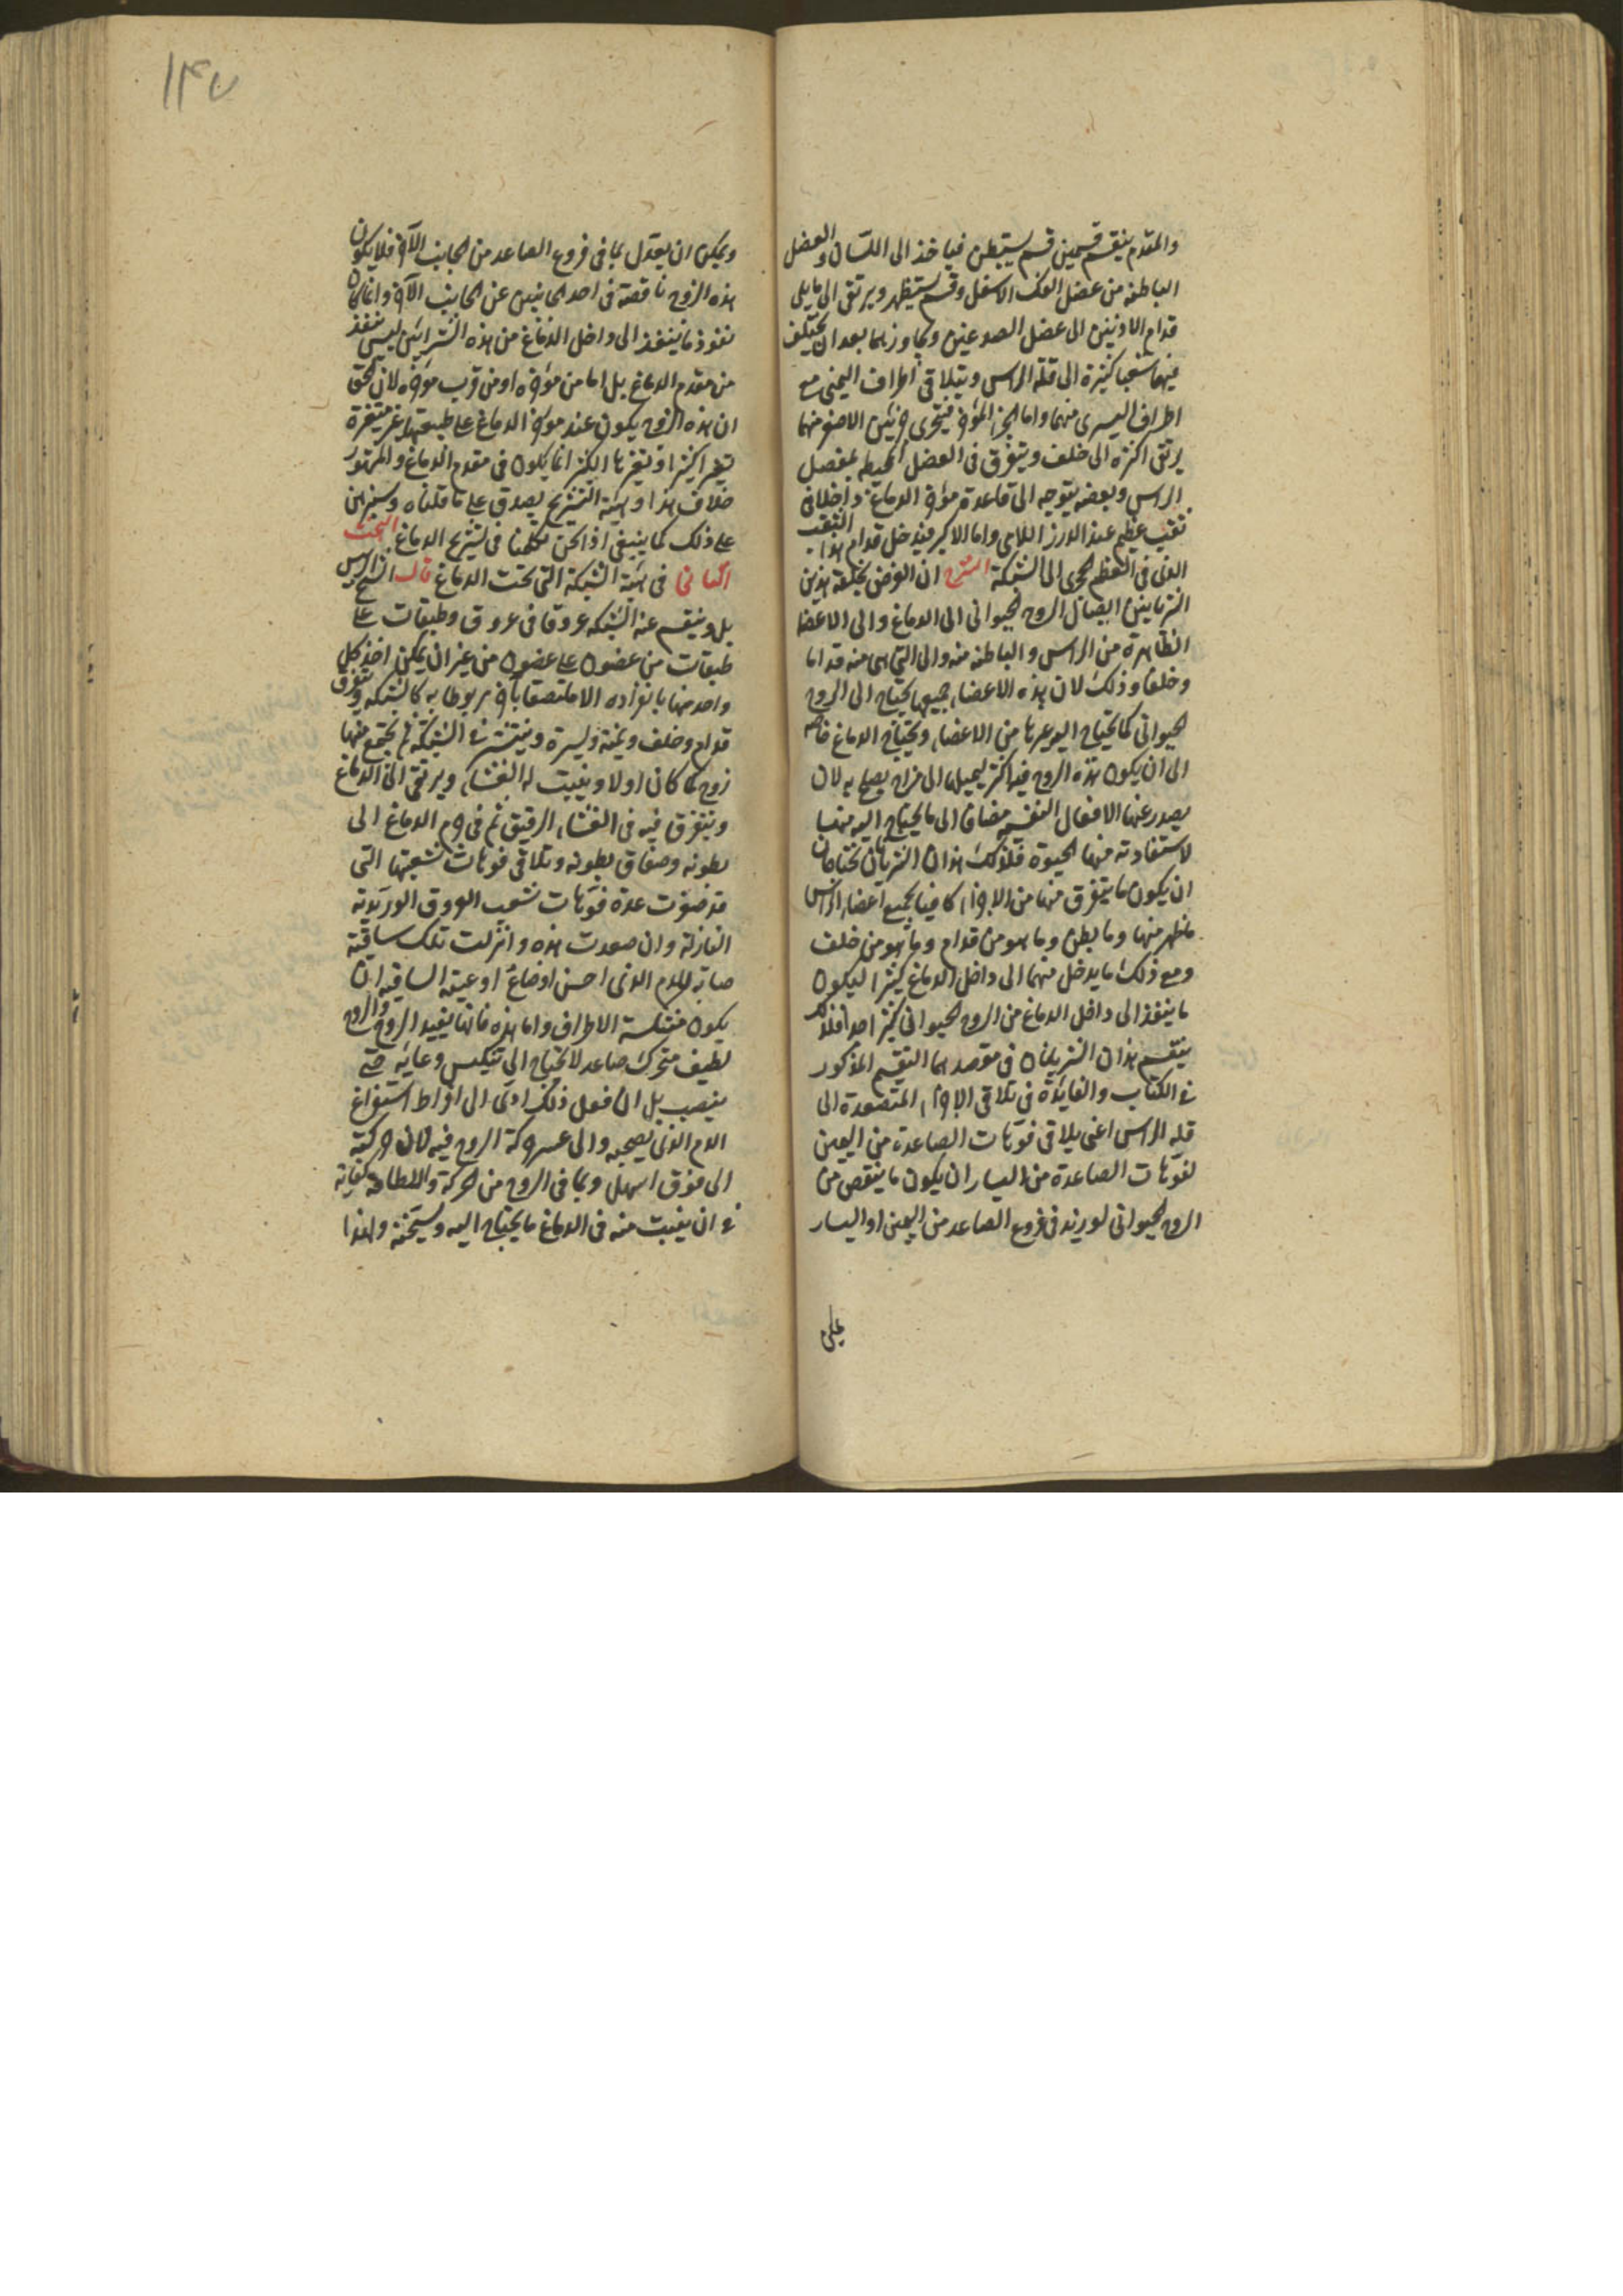 والمقدم ينقسم قسمين قسم يستبطن فياخذ الى اللسان والعضل
الباطنه من عضل الفك الاسفل وقسم يستظهر ويرتقى الى ما يلى
قدام الاذنين الى عضل الصدغين ويجاوزهما بعد ان يخلف
فيها شعبا كثيرة الى قلة الراس ويتلاقى اطراف اليمنى مع
اطراف اليسرى منهما واما الجزء المؤخر فيتجزى جزئين الاصغر منهما
يرتقى اكثره الى خلف ويتفرق فى العضل المحيطه بمفصل
الراس وبعضه يتوجه الى قاعدة مؤخر الدماغ داخلا فى
ثقب عظيم عند الدرز اللامى واما الاكبر فيدخل قدام هذا الثقب
الذى فى العظم الحجرى الى الشبكة الشرح ان الغرض بخلقة هذين
الشريانين ايصال الروح الحيوانى الى الدماغ والى الاعضا
الظاهرة من الراس والباطنه منه والى التى هى منه قداما
وخلفا وذلك لان هذه الاعضاء جميعها يحتاج الى الروح
الحيوانى كما يحتاج اليه غيرها من الاعضاء ويحتاج الدماغ خاصه
الى ان يكون هذه الروح فيه اكثر ليحيلها الى مزاج يصلح به لان
يصدر عنها الافعال النفسيه مضافا الى ما يحتاج اليه منها
لاستفادته منها الحيوة فلذلك هذان الشريانان يحتاجان
ان يكون ما يتفرق منهما من الاجزاء كافيا بجميع اعضاء الراس
ما ظهر منها وما بطن وما هو من قدام وما هو من خلف
ومع ذلك ما يدخل منهما الى داخل الدماغ كثيرا ليكون
ما ينفذ الى داخل الدماغ من الروح الحيوانى كثير اجدا فلذلك
ينقسم هذان الشريانان فى مقصدهما التقسيم المذكور
فى الكتاب والفايدة فى تلاقى الاجزاء المتصعدة الى
قلة الراس اعنى يلاقى فوهات الصاعدة من اليمين
لفوهات الصاعدة من اليسار ان يكون ما ينقص من
الروح الحيوانى لو زيد فى فروع الصاعد من اليمين او اليسار
١٤٧
ويمكن ان يعدل بما فى فروع الصاعد من الجانب الآخر فلا يكون
هذه الروح ناقصة فى احد الجانبين عن الجانب الآخر وانما كان
نفوذ ما ينفذ الى داخل الدماغ من هذه الشرايين ليس ينفذ
من مقدم الدماغ بل اما من مؤخره او من قرب مؤخره لان الحق
ان هذه الروح يكون عند مؤخر الدماغ على طبيعتها غير متغيرة
تغيرا كثيرا وتغيرها الكثير انما يكون فى مقدم الدماغ والمشهور
خلاف هذا وهيئة التشريح يصدق على ما قلناه وسنبرهن
على ذلك كما ينبغى اذا نحن تكلمنا فى تشريح الدماغ البحث
الثانى فى هيئة الشبكة التى تحت الدماغ قال الشيخ الرئيس
بل وينقسم عنه الشبكه عروقا فى عروق وطبقات على
طبقات من غضون على غضون من غير ان يمكن اخذ كل
واحد منها بانفراده الا ملتصقا بآخر مربوطا به كالشبكه ويتفرق
قدام وخلف ويمنة ويسرة وينتشر فى الشبكة ثم يجتمع منها
زوج كما كان اولا ويثبت له الغشاء ويرتقى الى الدماغ
ويتفرق فيه فى الغشاء الرقيق ثم فى جرم الدماغ الى
بطونه وصفاق بطونه ويلاقى فوهات شعبها التى
قد صغرت عدة فوهات شعب العروق الوريدية
النازلة وان صعدت هذه وانزلت تلك ساقية
صابه للدم الذى احسن اوضاع اوعيته الساقيه ان
يكون منتكسة الاطراف واما هذه فانها ينفذ الروح والروح
لطيف متحرك صاعد لا يحتاج الى تنكيس وعايه حتى
ينصب بل ان فعل ذلك ادى الى افراط استفراغ
الدم الذى يصحبه والى عسر حركة الروح فيه لان حركته
الى فوق اسهل وبما فى الروح من الحركة واللطافة كفاية
فى ان ينبث منه فى الدماغ ما يحتاج اليه ويسخنه ولهذا